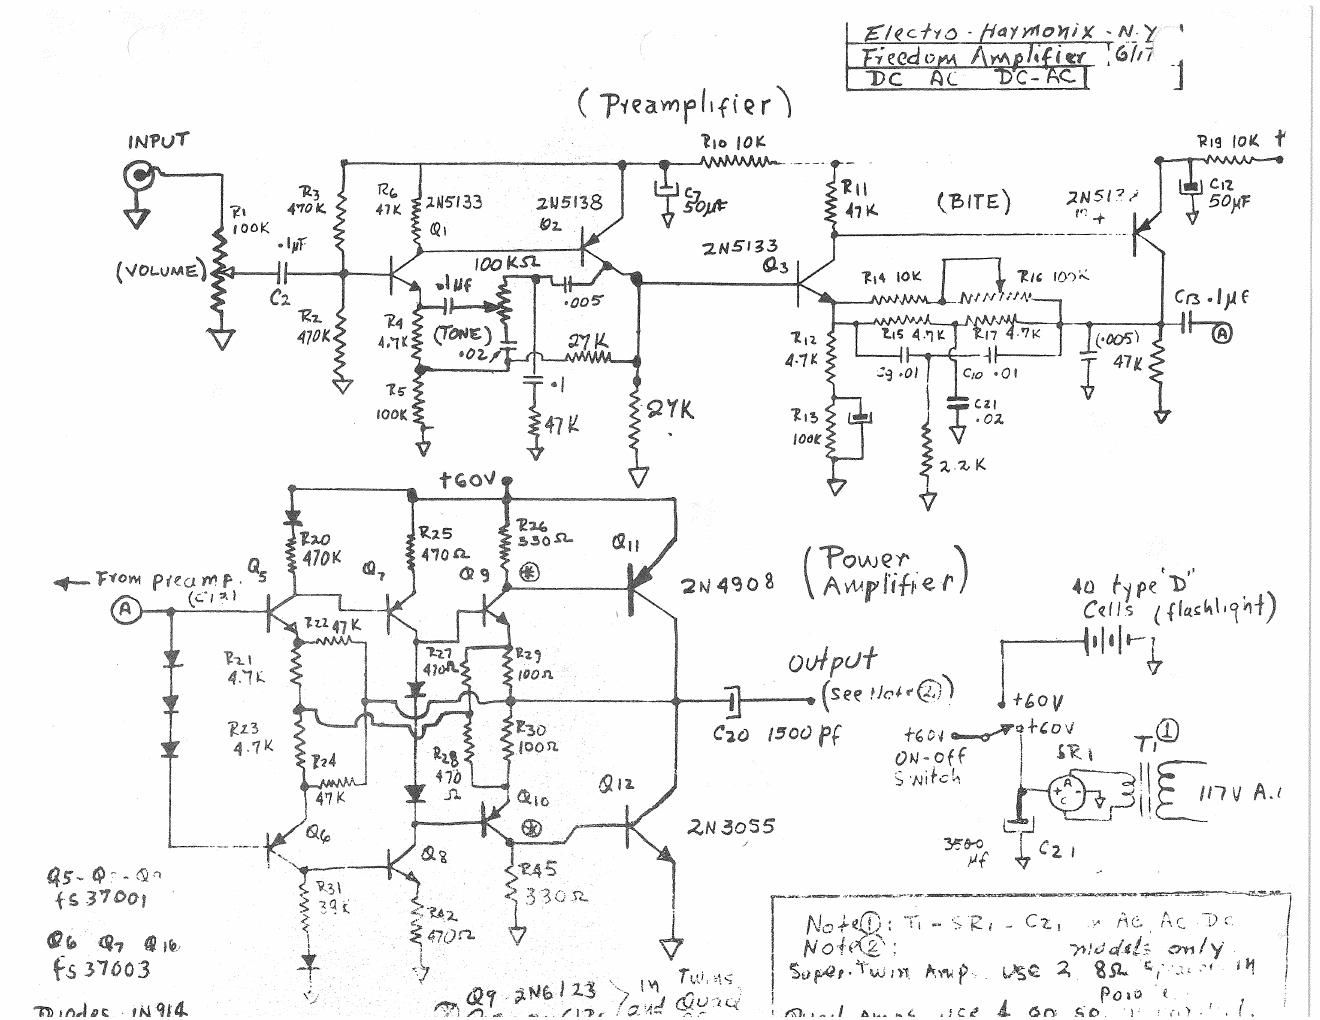 Electro-Harmonix - N.Y
Freedom Amplifier
DC AC DC-AC
(Preamplifier)
INPUT
R1
100K
(VOLUME)
.1µF
C2
R3
470K
R2
470K
R6
47K
2N5133
Q1
2N5138
Q2
R10 10K
C7
50µF
100KΩ
.1µf
(TONE)
.02
.005
R4
4.7K
R5
100K
27K
.1
47K
27K
2N5133
Q3
R11
47K
(BITE)
R19 10K +
C12
50µF
R14 10K
R16 100K
R15 4.7K
R17 4.7K
C9 .01
C10 .01
R12
4.7K
R13
100K
C21
.02
2.2K
(.005)
47K
C13 .1µf
A
+60V
R20
470K
R25
470Ω
R26
330Ω
Q5
Q7
Q9
Q11
2N4908
(Power
Amplifier)
From preamp.
A
R22 47K
R21
4.7K
R23
4.7K
R24
47K
R27
470Ω
R28
470
Ω
R29
100Ω
R30
100Ω
Output
(See Note 2)
C20 1500 pf
Q6
Q8
Q10
Q12
2N3055
R31
39K
R42
470Ω
R45
330Ω
40 type "D"
Cells (flashlight)
+60V
+60V
+60V
ON-OFF
Switch
SR1
T1 1
A
C
+ -
117V A.
3500
µf
C21
Q5-
fs37001
Q6 Q7 Q10
fs37003
Diodes IN914
Q9 2N6123
in Twins
and Quad
Note 1: T1 - SR1 - C21 AC, AC DC
Note 2: models only
Super Twin Amp. use 2 8Ω in
Amps use 4